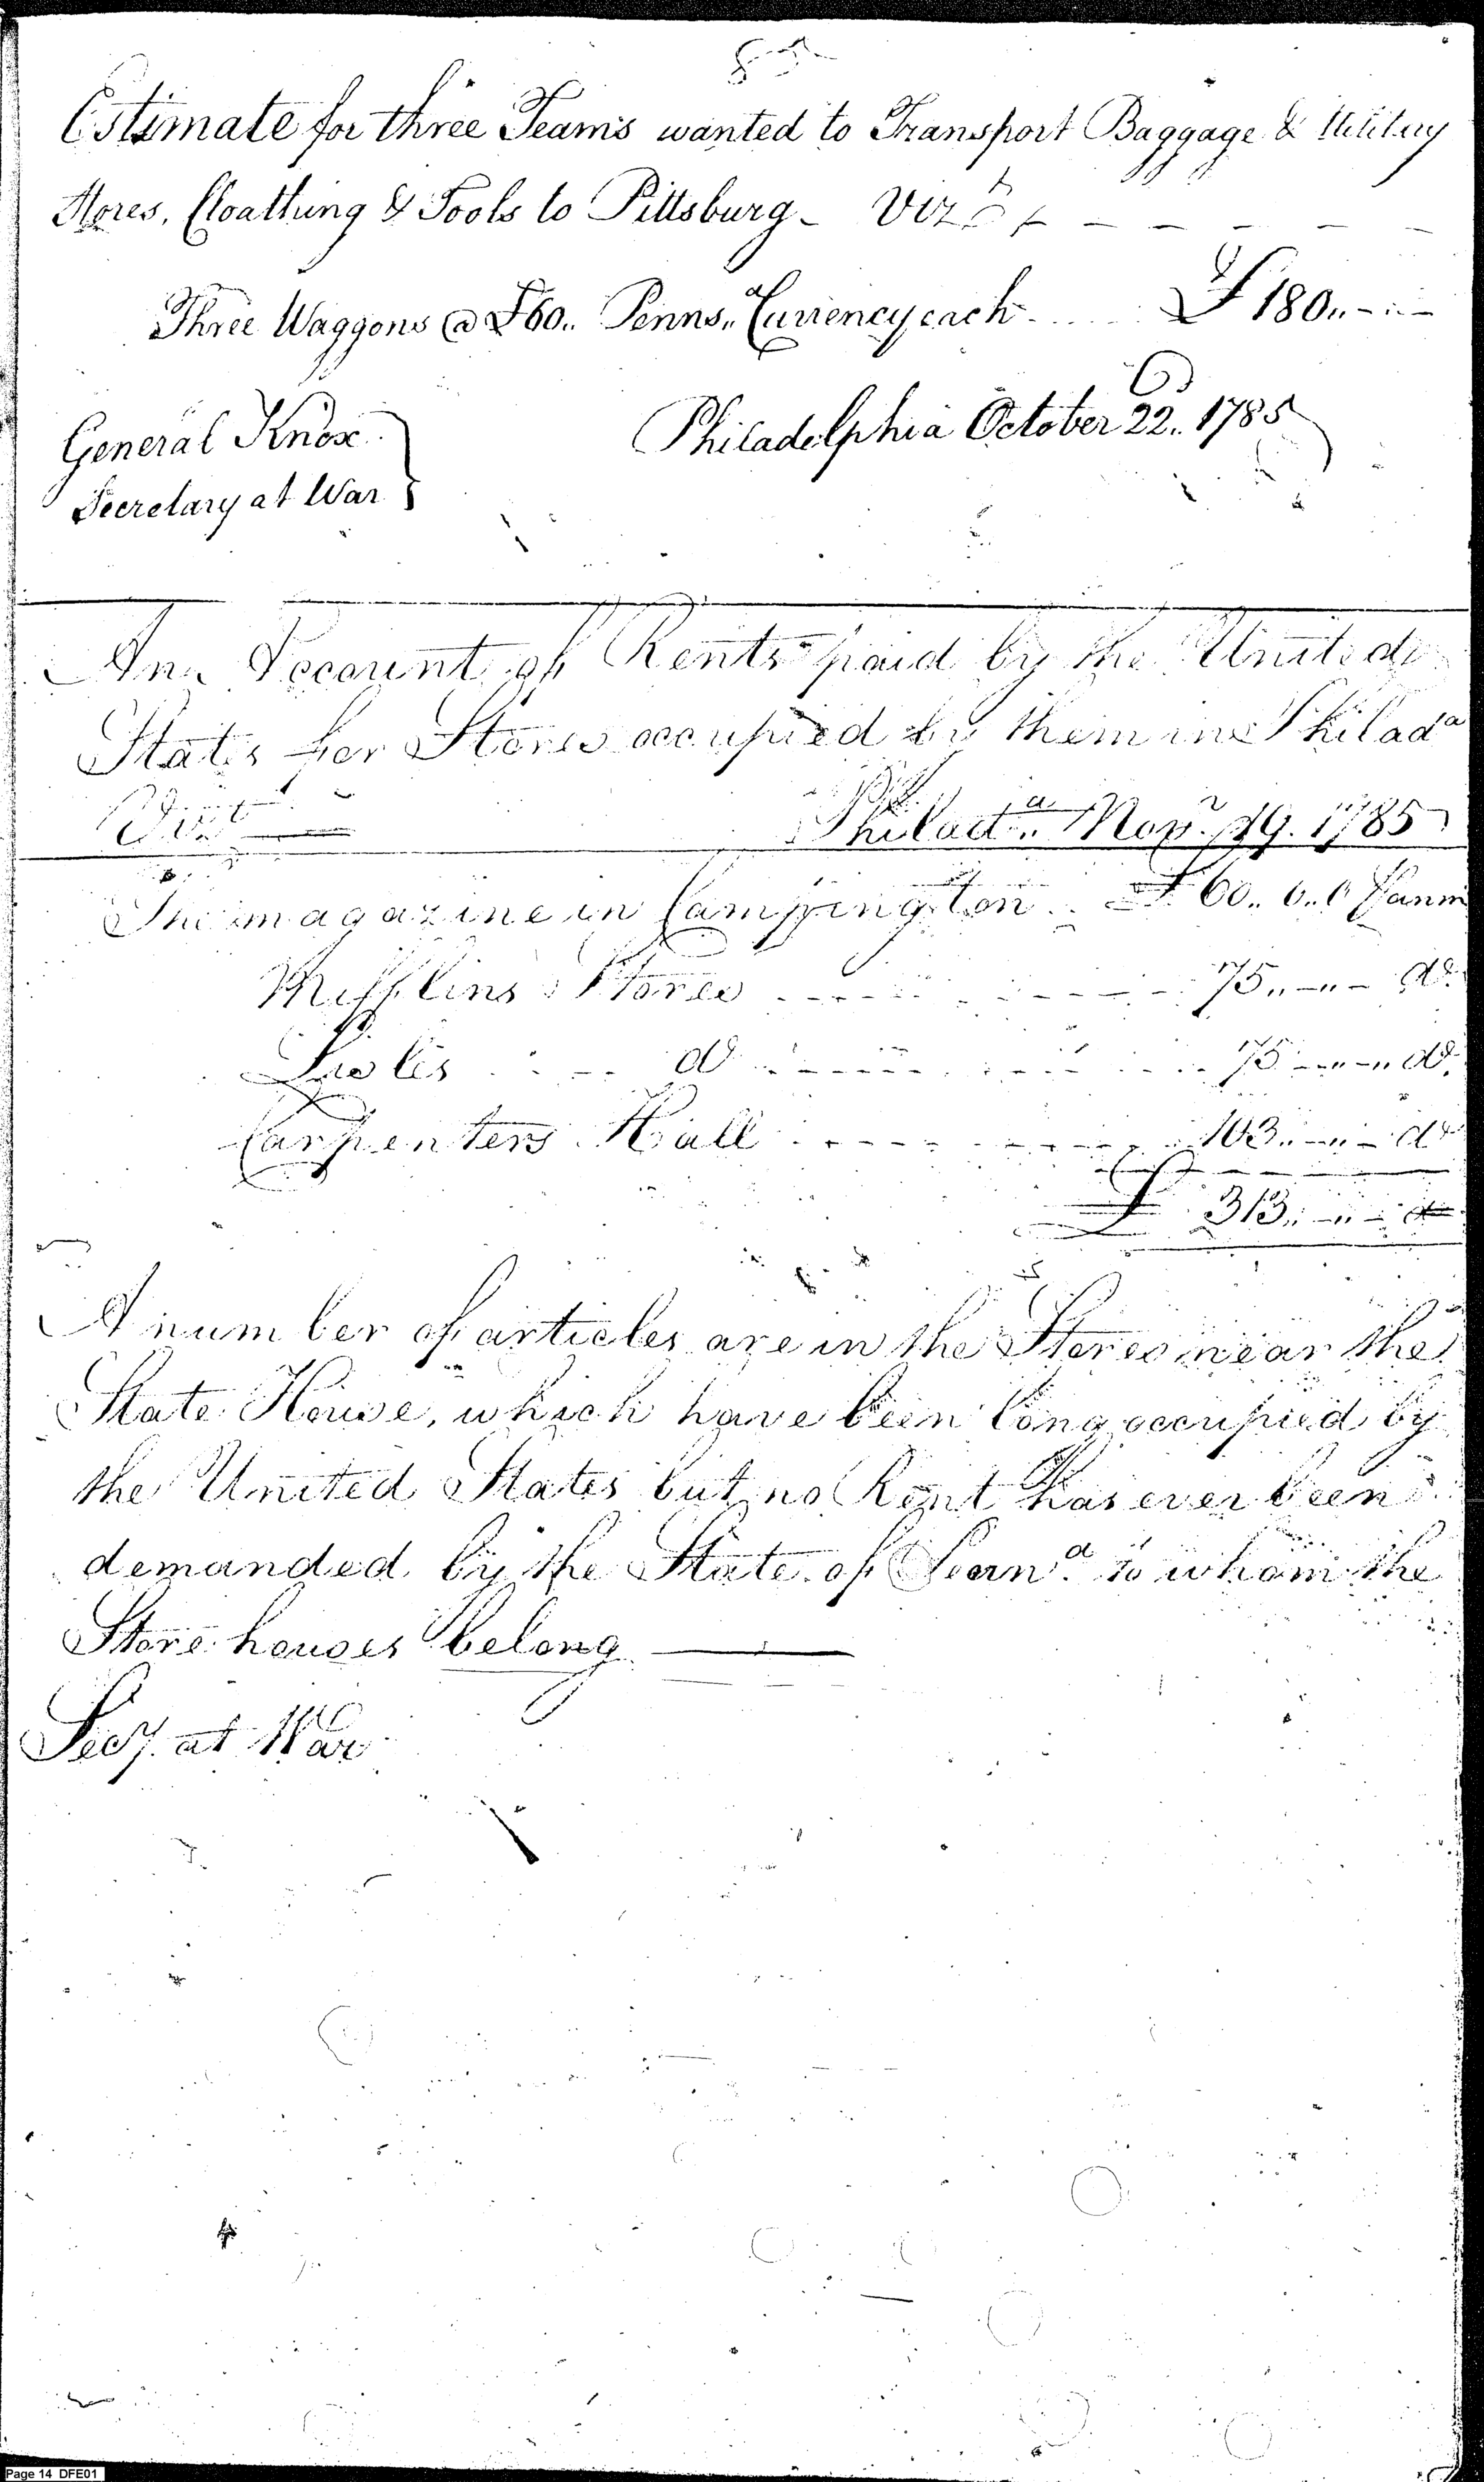 Estimate for three Teams wanted to Transport Baggage & Military
Stores, Cloathing & Tools to Pittsburg - Vizt
Three Waggons @ £60.. Penns.a Currency each £180..-..-
General Knox
Secretary at War
Philadelphia October 22.. 1785
An Account of Rents paid by the United
States for Stores occupied by them in Philada
Vizt
Philada.. Novr 19. 1785
The magazine in Camppington £60..0..0 Pann
Mifflins Stores 75..-..- do
do 75..-..- do
Carpenters Hall 103..-..- do
£ 313..-..-
A number of articles are in the Stores near the
State House, which have been long occupied by
the United States but no Rent has ever been
demanded by the State of Penna to whom the
Store houses belong
Secy at War
Page 14 DFE01